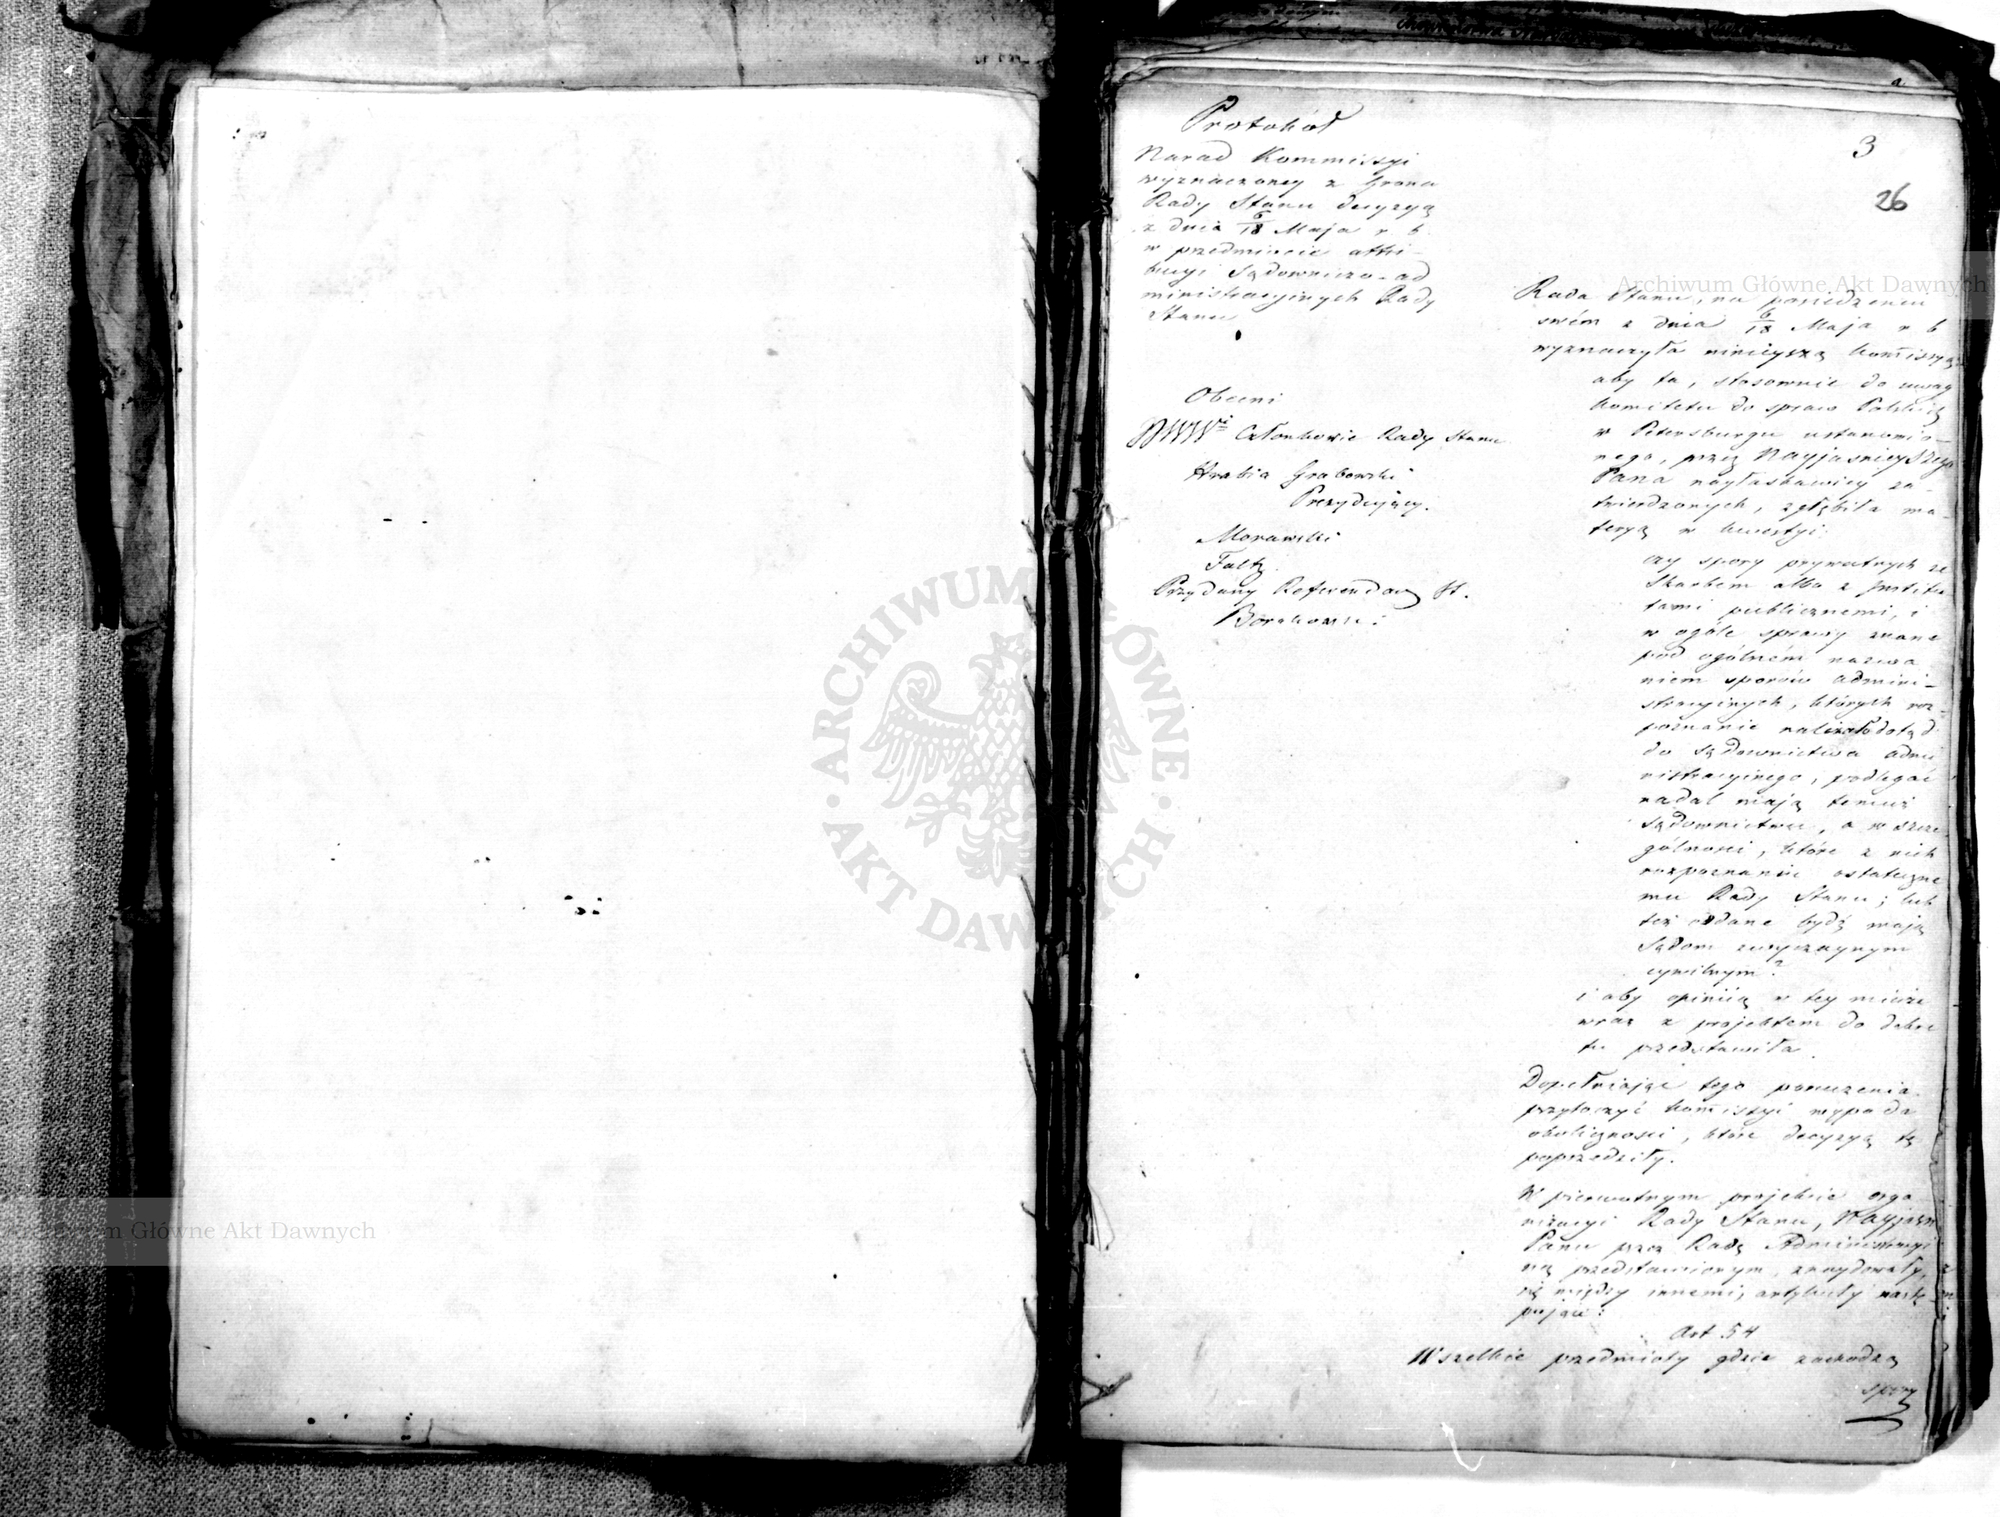 3
26
Protokół
Narad Kommissyi
wyznaczoney z Grona
Rady Stanu decyzyą
z dnia 6/18 Maja r b
w przedmiocie attri-
bucyi Sądowniczo-ad
ministracyinych Rady
Stanu
Obecni
JWWni Członkowie Rady Stanu
Hrabia Grabowski
Prezydujący.
Morawski
Faltz.
Przydany Referendarz St.
Rada Stanu, na posiedzeniu
swém z dnia 6/18 Maja r b
wyznaczyła ninieyszą kom̄issyą
aby ta, stosownie do uwag
komitetu do spraw Polskich
w Petersburgu ustanowio-
nego, przez Nayjaśnieyszego
Pana nayłaskawiey za-
twierdzonych, zgłębiła ma-
teryą w kwestyi:
czy spory prywatnych ze
Skarbem albo z Institu
tami publicznemi, i
w ogóle sprawy znane
pod ogólném nazwa
niem sporów admini-
stracyinych, których roz-
poznanie należało dotąd
do sądownictwa admi
nistracyinego, podlegać
nadal mają temuż
sądownictwu, a w szcze-
gólności, które z nich
rozpoznaniu ostateczne
mu Rady Stanu; lub
też oddane bydź mają
Sądom zwyczaynym
cywilnym?
i aby opiniią w tey mierze
wraz z projektem do dekre
tu przedstawiła.
Dopełniając tego poruczenia
przytoczyć kom̄issyi wypada
okoliczności, które decyzyą tę
poprzedziły.
W pierwotnym projekcie orga
nizacyi Rady Stanu, Nayjaśn
Panu przez Radę Administracyi
ną przedstawionym, znaydowały
się między innemi, artykuły nastę
pujące:
Art 54
Wszelkie przedmioty gdzie zachodzą
spory
Archiwum Główne Akt Dawnych
Archiwum Główne Akt Dawnych
ARCHIWUM GŁÓWNE
AKT DAWNYCH